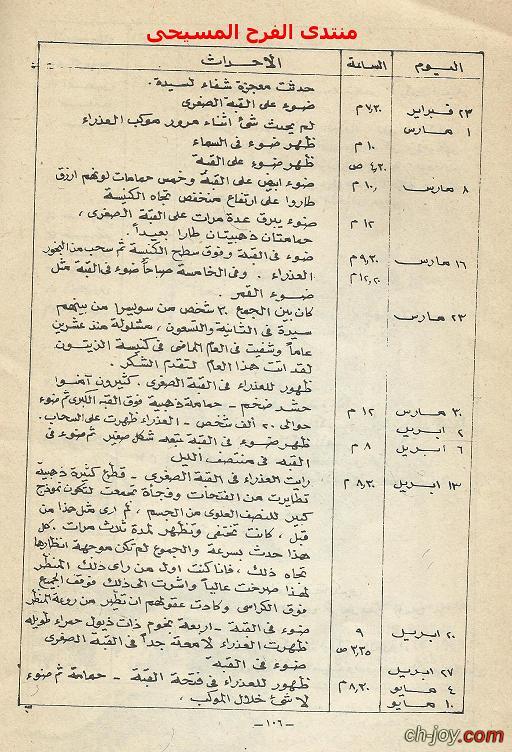 منتدى الفرح المسيحى
اليوم الساعة الأحداث
حدثت معجزة شفاء لسيدة.
٢٣ فبراير ٧٫٣٠ م ضوء على القبة الصغرى
١ مارس لم يحدث شئ اثناء مرور موكب العذراء
١٠ م ظهر ضوء فى السماء
٤٫٣٠ ص ظهر ضوء على القبة
٨ مارس ١٠٫ م ضوء ابيض على القبة وخمس حمامات لونهم ازرق
طاروا على ارتفاع منخفض تجاه الكنيسة
١٢ م ضوء يبرق عدة مرات على القبة الصغرى،
حمامتان ذهبيتان طارا بعيداً.
١٦ مارس ٩٫٣٠ م ضوء فى القبة وفوق سطح الكنيسة ثم سحب من البخور
١٢٫٢٠ م العذراء . وفى الخامسة صباحاً ضوء فى القبة مثل
ضوء القمر.
٢٣ مارس كان بين الجمع ٣٠ شخص من سويسرا من بينهم
سيدة فى الثانية والتسعون، مشلولة منذ عشرين
عاماً وشفيت فى العام الماضى فى كنيسة الزيتون
لقد اتت هذا العام لتقدم الشكر.
ظهور للعذراء فى القبة الصغرى. كثيرون آمنوا
٣٠ مارس ١٢ م حشد ضخم - حمامة ذهبية فوق القبه الكبرى ثم ضوء
٢ ابريل حوالى ٢٠ الف شخص - العذراء ظهرت على السحاب.
٦ ابريل ٨ م ظهر ضوء فى القبة تبعه شكل صغير ثم ضوء فى
القبه فى منتصف الليل
١٣ ابريل ٨٫٣٠ م رايت العذراء فى القبة الصغرى - قطع كثيرة ذهبية
تطايرت من الفتحات وفجأة تجمعت لتكون نموذج
كبير للنصف العلوى من الجسم، لم ارى مثل هذا من
قبل، كانت تختفى وتظهر لمدة ثلاث مرات. كل
هذا حدث بسرعة والجموع لم تكن موجهة انظارها
تجاه ذلك، فانا كنت اول من راى ذلك المنظر
لهذا صرخت عالياً واشرت الى ذلك فوقف الجميع
فوق الكراسى وكادت عقولهم ان تطير من روعة المنظر
٢٠ ابريل ٩ ضوء فى القبة - اربعة نجوم ذات ذيول حمراء طويله
٣٫٣٥ ص ظهرت العذراء لامعة جداً فى القبة الصغرى
٢٧ ابريل ضوء فى القبة
٤ مايو ٨٫٣٠ م ظهور للعذراء فى فتحة القبة - حمامة ثم ضوء
١٠ مايو لا شئ خلال الموكب،
- ١٠٦ -
ch-joy.com